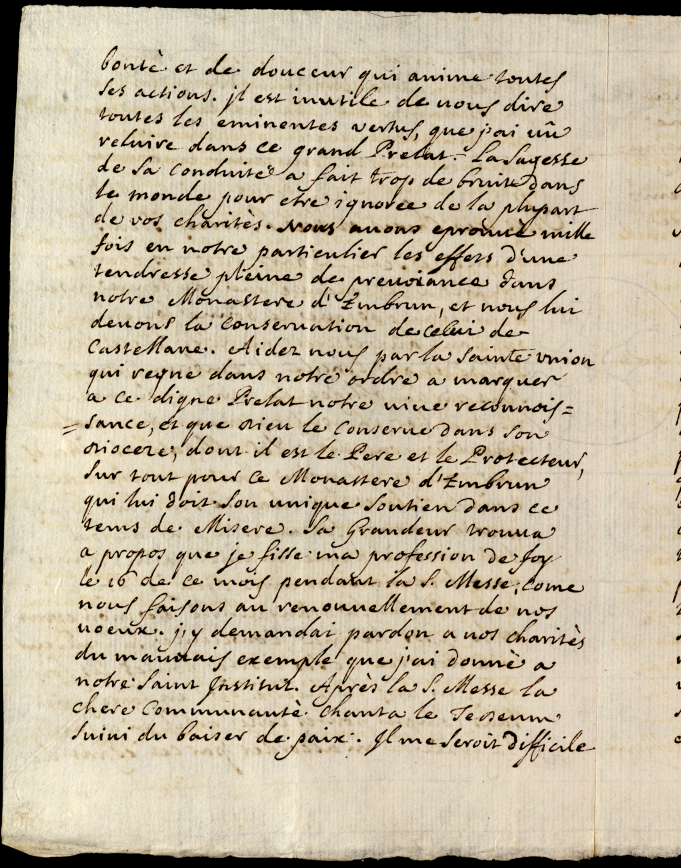 bontè et de douceur qui anime toutes
ses actions. jl est inutile de nous dire
toutes les eminentes vertus, que j'ai vû
reluire dans ce grand Prelat. La Sagesse
de sa conduite a fait trop de bruit dans
le monde pour etre ignorée de la plupart
de vos charitès. Nous auons eprouuè mille
fois en notre particulier les effets d'une
tendresse pleine de preuoiance dans
notre Monastere d'Embrun, et nous lui
deuons la conseruation de celui de
Castellane. Aidez nous par la sainte vnion
qui regne dans notre ordre a marquer
a ce digne Prelat notre uiue reconnois=
=sance, et que dieu le conserue dans son
diocese, dont il est le Pere et le Protecteur,
sur tout pour ce Monastere d'Embrun
qui lui doit son unique soutien dans ce
tems de Misere. Sa Grandeur trouua
a propos que je fisse ma profession de foy
le 16 de ce mois pendant la S. Messe, come
nous faisons au renouuellement de nos
uoeux. j'y demandai pardon a nos charitès
du mauuais exemple que j'ai donnè a
notre Saint Jnstitut. Après la S. Messe la
chere Communautè chanta le Tedeum
suivi du baiser de paix. Jl me seroit difficile